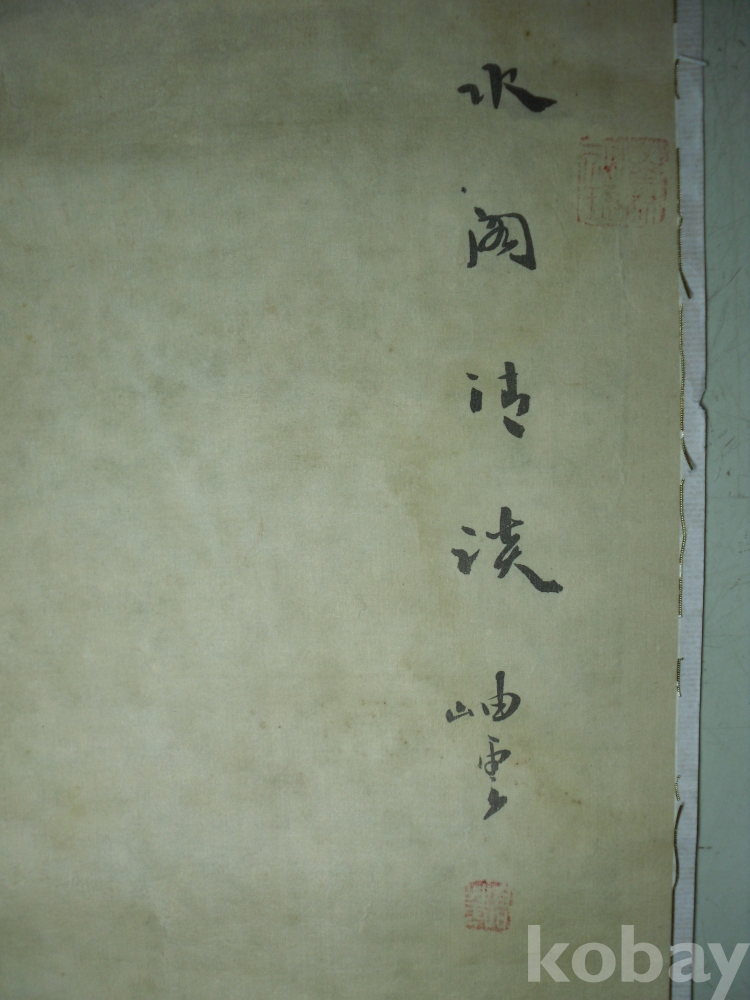 水閣清談 岫雲
kobay